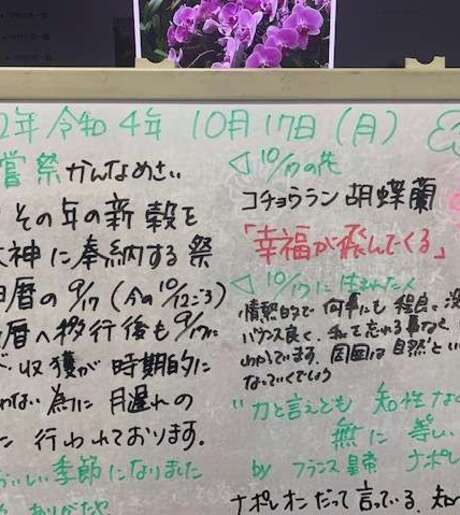 2年 令和4年 10月17日(月)
嘗祭 かんなめさい
その年の新穀を
大神に奉納する祭
旧暦の9/17 (今の10/12ごろ)
暦へ移行後も9/17に
収獲が時期的に
わない為に月遅れの
に 行われております。
おいしい季節になりました
ありがたや
◁10/17の花
コチョウラン 胡蝶蘭
「幸福が飛んでくる」
◁10/17に生まれた人
情熱的で何事にも程良く没
バランス良く、私を忘れる事なく、
わかっています。周囲は自然とい
なっていくでしょう
"力と言えども 知性な
無に等しい
by フランス皇帝 ナポレ
ナポレオンだって言っている、知